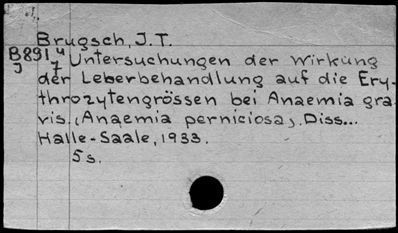 Brugsch, J.T.
B891u Untersuchungen der Wirkung
J 7 der Leberbehandlung auf die Ery-
throzytengrössen bei Anaemia gra-
vis (Anaemia perniciosa). Diss...
Halle-Saale, 1933.
5s.